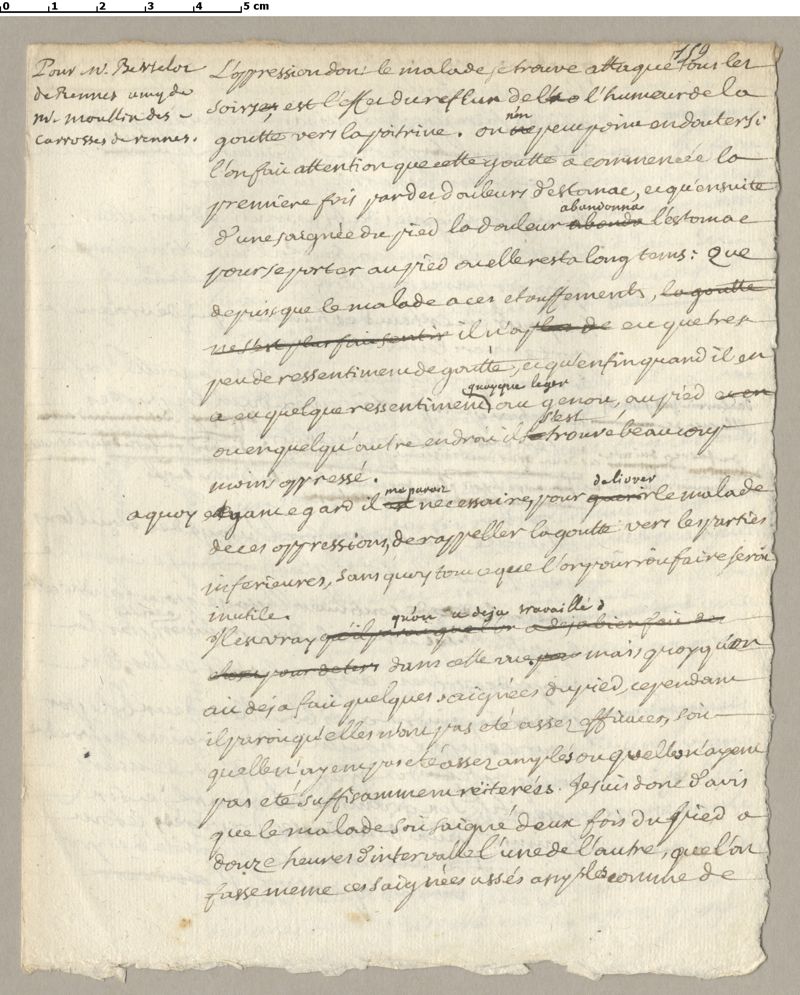 0 1 2 3 4 5 cm
159
Pour Mr. Bertelot
de Rennes amy de
Mr. moullin des
carrosses de rennes.
L'oppression dont le malade se trouve attaqué tous les
soirs, est l'effet du reflux de l'humeur de la
goutte vers la poitrine. on n'en peut point en douter si
l'on fait attention que cette goutte a commencée la
premiere fois par des douleurs d'estomac, et qu'ensuite
d'une saignée du pied la douleur abandonna l'estomac
pour se porter au pied ou elle resta long tems: Que
depuis que le malade a ces etouffements, la goutte
ne s'est plus fait sentir il n'a plus de eu que tres
peu de ressentiment de goutte, et qu'enfin quand il en
a eu quelque ressentiment quoyque leger ou genou, au pied et en
ou en quelqu'autre endroit il s'est trouvé beaucoup
moins oppressé.
a quoy ayant egard il me paroit necessaire, pour delivrer guerir le malade
de ces oppressions, de rappeller la goutte vers les parties
inferieures, sans quoy tout ce que l'on pourroit faire seroit
inutile.
Il est vray qu'on a deja travaillé
dans cette vue mais quoyqu'on
ait deja fait quelques saignées du pied, cependant
il paroit qu'elles n'ont pas eté assez efficaces, soit
quelle n'ayent pas eté assez amples ou quelles n'ayent
pas eté suffisamment reiterées. Je suis donc d'avis
que le malade soit saigné deux fois du pied a
douze heures d'intervalle l'une de l'autre, que l'on
fasse meme ces saignées assés amples comme de